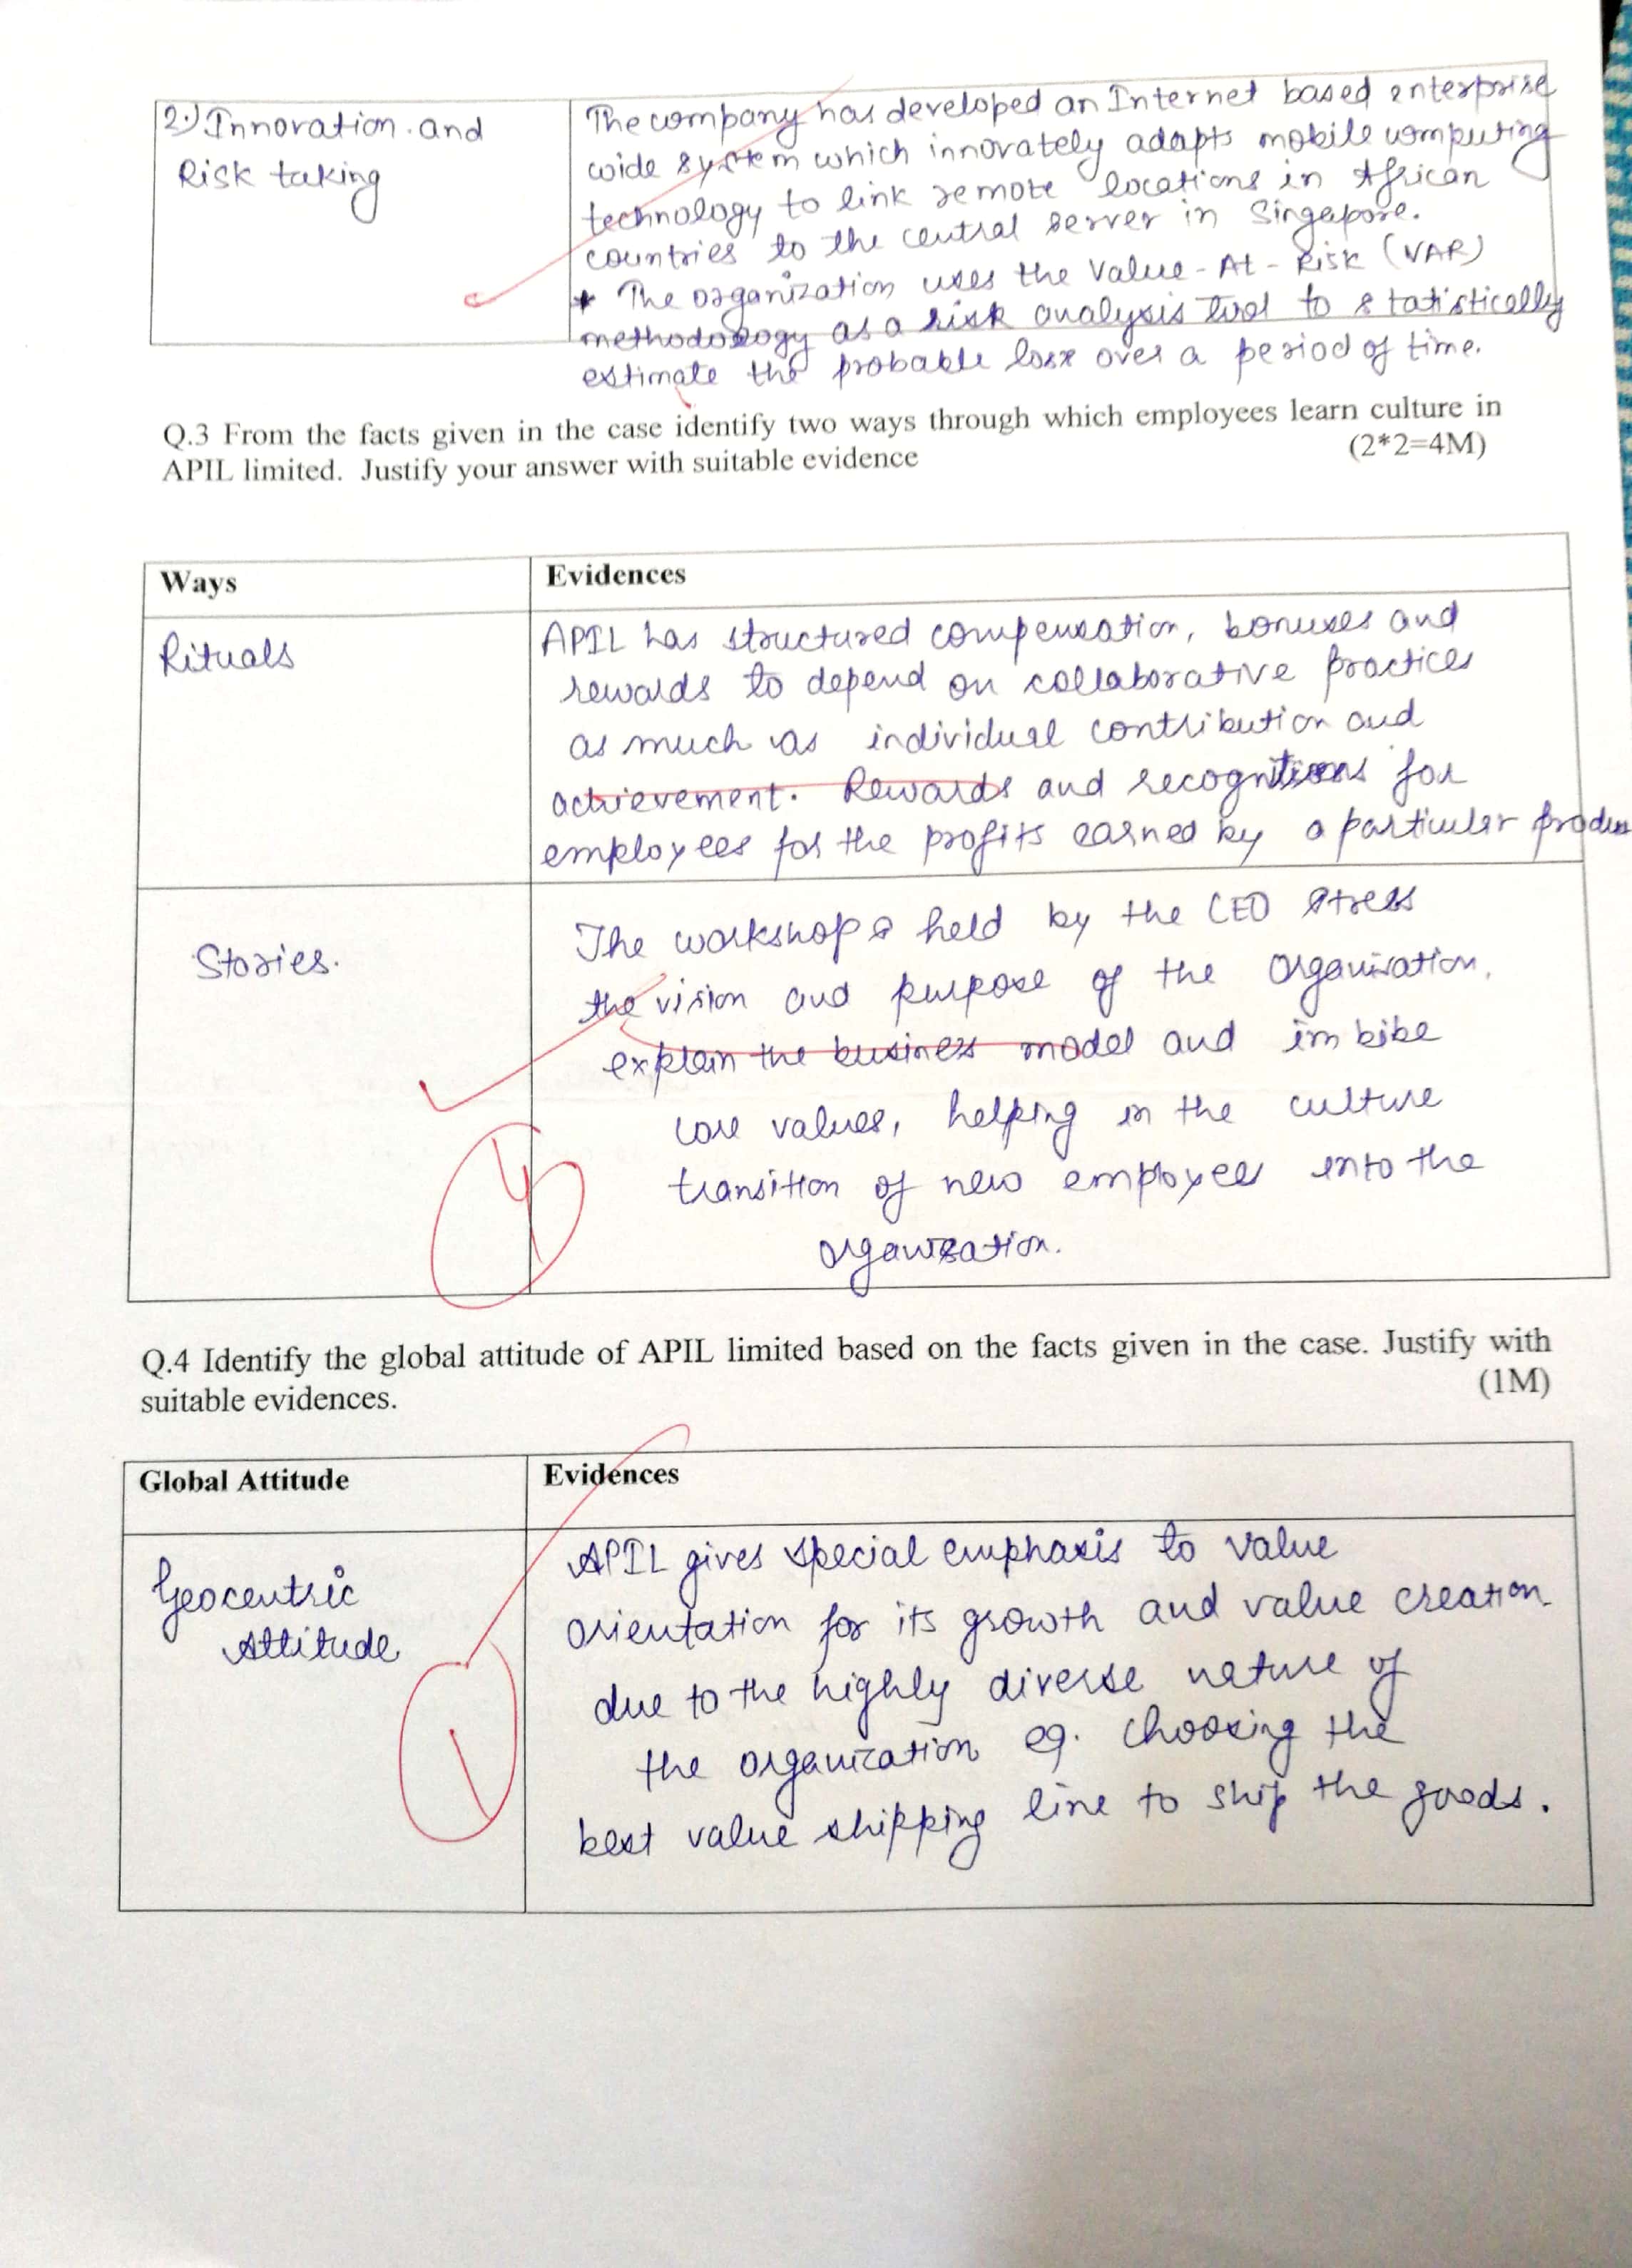 2.) Innovation and
Risk taking
The company has developed an Internet based enterprise
wide system which innovately adapts mobile computing
technology to link remote locations in African
countries to the central server in Singapore.
* The organization uses the Value-At-Risk (VAR)
methodology as a risk analysis tool to statistically
estimate the probable loss over a period of time.
Q.3 From the facts given in the case identify two ways through which employees learn culture in
APIL limited. Justify your answer with suitable evidence (2*2=4M)
Ways
Evidences
Rituals
APIL has structured compensation, bonuses and
rewards to depend on collaborative practices
as much as individual contribution and
achievement. Rewards and recognitions for
employees for the profits earned by a particular
Stories.
The workshops held by the CEO stress
the vision and purpose of the organisation,
explain the business model and imbibe
core values, helping in the culture
transition of new employees into the
organization.
4
Q.4 Identify the global attitude of APIL limited based on the facts given in the case. Justify with
suitable evidences. (1M)
Global Attitude
Evidences
Geocentric
Attitude
APIL gives special emphasis to value
orientation for its growth and value creation
due to the highly diverse nature of
the organization eg. choosing the
best value shipping line to ship the goods.
1